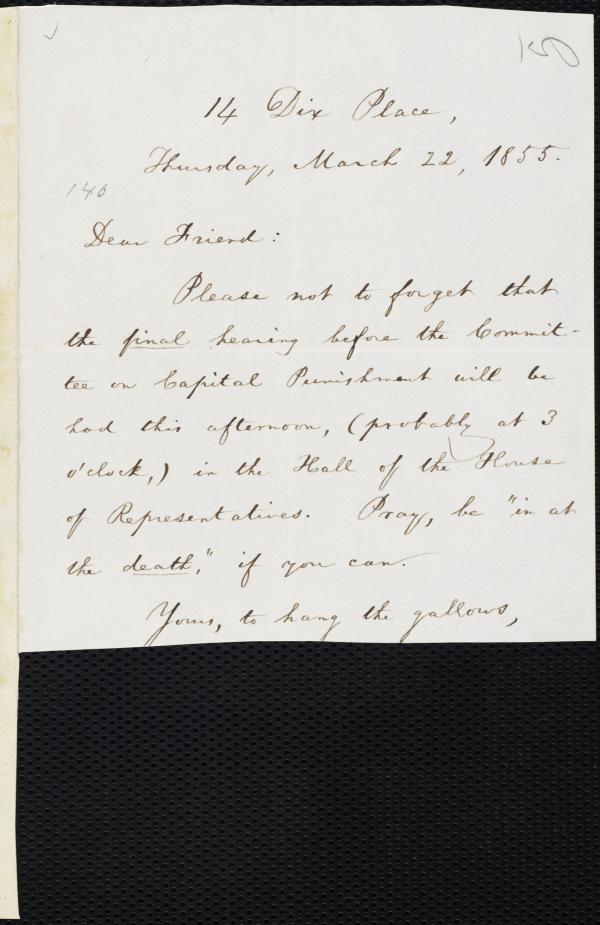 150
14 Dix Place,
Thursday, March 22, 1855.
140
Dear Friend:
Please not to forget that
the final hearing before the Commit-
tee on Capital Punishment will be
had this afternoon, (probably at 3
o'clock,) in the Hall of the House
of Representatives. Pray, be "in at
the death," if you can.
Yours, to hang the gallows,